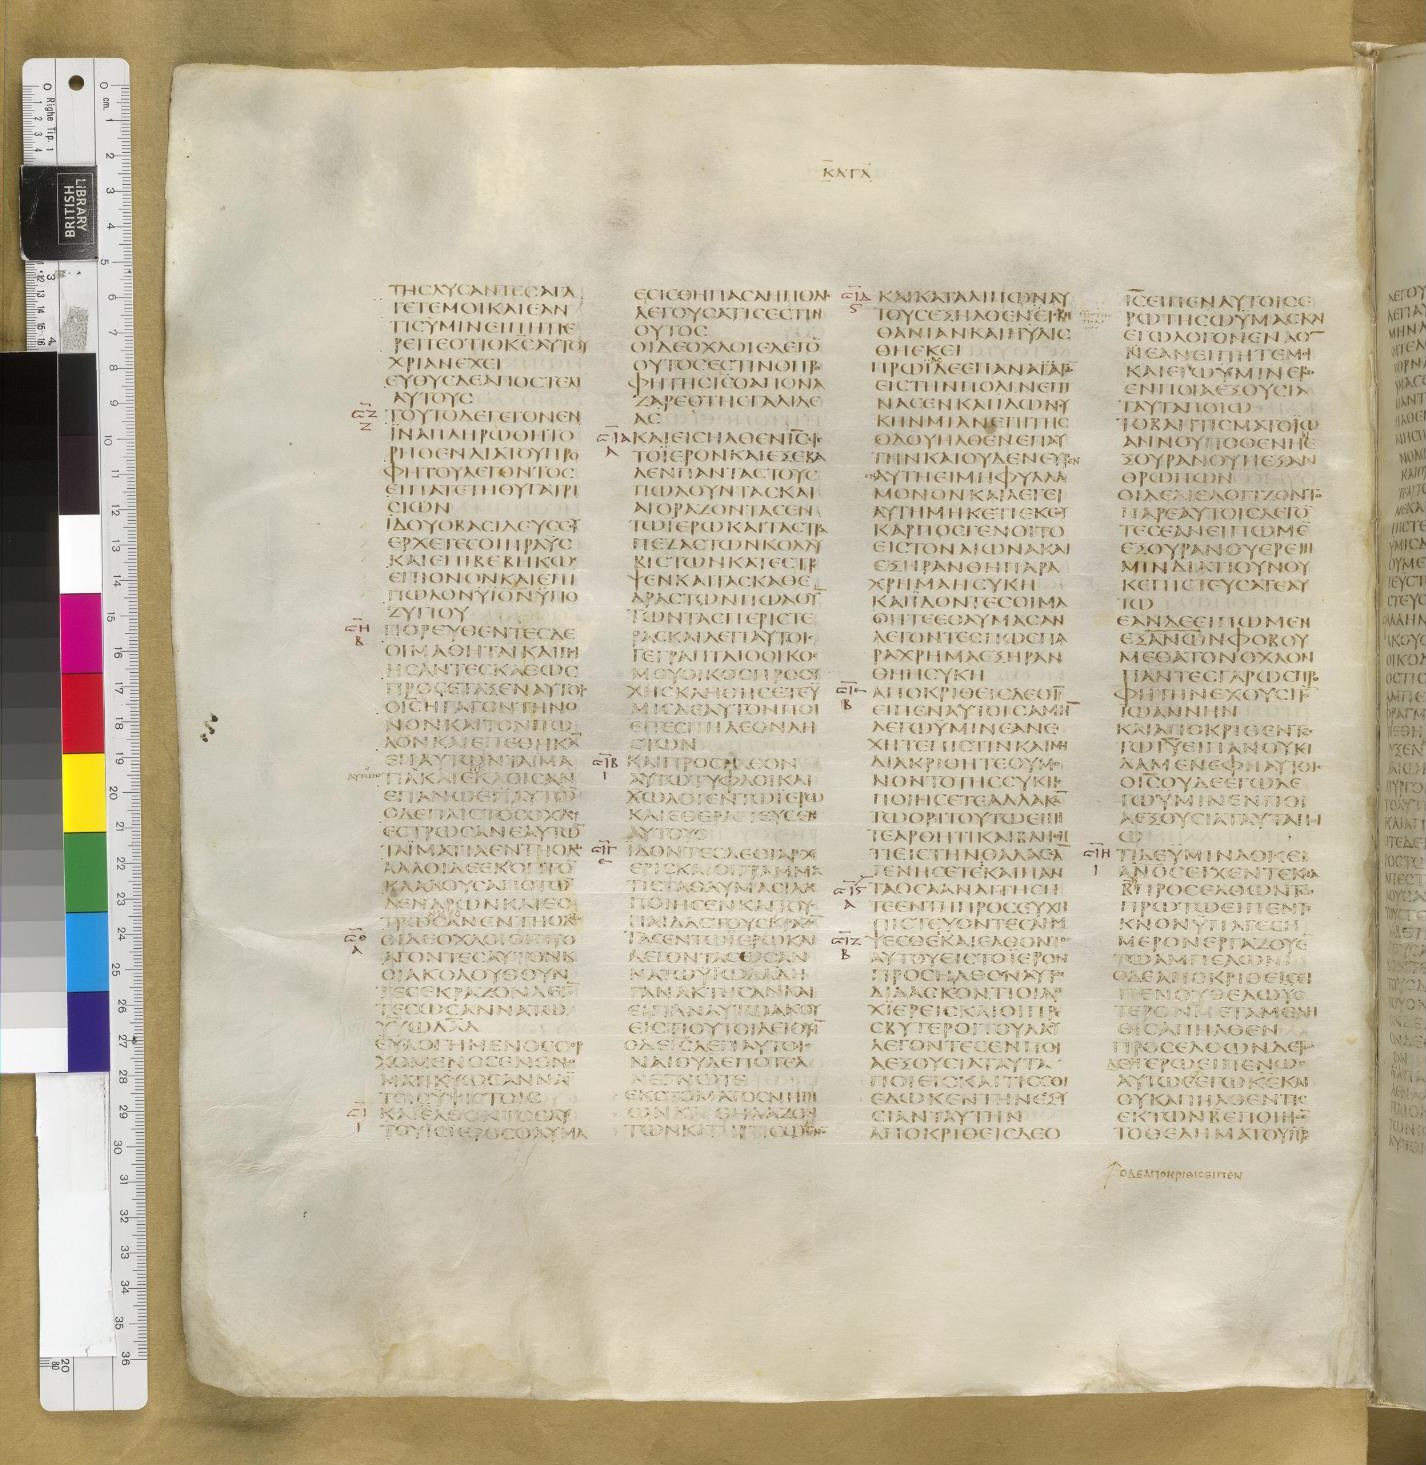 ΚΑΤΑ
ΤΗϹΛΥϹΑΝΤΕϹΑΓΑ
ΓΕΤΕΜΟΙΚΑΙΕΑΝ
ΤΙϹΥΜΙΝΕΙΠΗΤΙΕ
ΡΕΙΤΕΟΤΙΟΚϹΑΥΤΟΥ
ΧΡΙΑΝΕΧΕΙ
ΕΥΘΥϹΔΕΑΠΟϹΤΕΛΙ
ΑΥΤΟΥϹ
ΤΟΥΤΟΔΕΓΕΓΟΝΕΝ
ΪΝΑΠΛΗΡΩΘΗΤΟ
ΡΗΘΕΝΔΙΑΤΟΥΠΡΟ
ΦΗΤΟΥΛΕΓΟΝΤΟϹ
ΕΙΠΑΤΕΤΗΘΥΓΑΤΡΙ
ϹΙΩΝ
ΪΔΟΥΟΒΑϹΙΛΕΥϹϹΟΥ
ΕΡΧΕΤΕϹΟΙΠΡΑΫϹ
ΚΑΙΕΠΙΒΕΒΗΚΩϹ
ΕΠΙΟΝΟΝΚΑΙΕΠΙ
ΠΩΛΟΝΥΙΟΝΫΠΟ
ΖΥΓΙΟΥ
ΠΟΡΕΥΘΕΝΤΕϹΔΕ
ΟΙΜΑΘΗΤΑΙΚΑΙΠΟΙ
ΗϹΑΝΤΕϹΚΑΘΩϹ
ΠΡΟϹΕΤΑΞΕΝΑΥΤΟΙϹ
ΟΙϹΗΓΑΓΟΝΤΗΝΟ
ΝΟΝΚΑΙΤΟΝΠΩ
ΛΟΝΚΑΙΕΠΕΘΗΚΑ̅
ΕΠΑΥΤΩΝΤΑΪΜΑ
ΕΠΑΝΩΕΠΑΥΤΟΝ
ΟΔΕΠΛΙϹΤΟϹΟΧΛΟϹ
ΕϹΤΡΩϹΑΝΕΑΥΤΩ̅
ΤΑΪΜΑΤΙΑΕΝΤΗΟΔΩ
ΑΛΛΟΙΔΕΕΚΟΠΤΟ̅
ΚΛΑΔΟΥϹΑΠΟΤΩ̅
ΔΕΝΔΡΩΝΚΑΙΕϹ
ΤΡΩϹΑΝΕΝΤΗΟΔΩ
ΟΙΔΕΟΧΛΟΙΟΙΠΡΟ
ΑΓΟΝΤΕϹΑΥΤΟΝΚΑΙ
ΟΙΑΚΟΛΟΥΘΟΥΝ
ΤΕϹΕΚΡΑΖΟΝΛΕΓΟ̅
ΤΕϹΩϹΑΝΝΑΤΩ
ΥΪΩΔΑΔ
ΕΥΛΟΓΗΜΕΝΟϹΟΕΡ
ΧΟΜΕΝΟϹΕΝΟΝΟ
ΜΑΤΙΚΥΩϹΑΝΝΑ
ΤΟΙϹΥΨΙϹΤΟΙϹ
ΚΑΙΕΛΘΟΝΤΟϹΑΥ
ΤΟΥΙϹΪΕΡΟϹΟΛΥΜΑ
ΕϹΙϹΘΗΠΑϹΑΗΠΟΛΙϹ
ΛΕΓΟΥϹΑΤΙϹΕϹΤΙΝ
ΟΥΤΟϹ
ΟΙΔΕΟΧΛΟΙΕΛΕΓΟ̅
ΟΥΤΟϹΕϹΤΙΝΟΠΡΟ
ΦΗΤΗϹΙϹΟΑΠΟΝΑ
ΖΑΡΕΘΤΗϹΓΑΛΙΛΕ
ΑϹ
ΚΑΙΕΙϹΗΛΘΕΝΙϹΕΙϹ
ΤΟΪΕΡΟΝΚΑΙΕΞΕΒΑ
ΛΕΝΠΑΝΤΑϹΤΟΥϹ
ΠΩΛΟΥΝΤΑϹΚΑΙ
ΑΓΟΡΑΖΟΝΤΑϹΕΝ
ΤΩΪΕΡΩΚΑΙΤΑϹΤΡΑ
ΠΕΖΑϹΤΩΝΚΟΛΛΥ
ΒΙϹΤΩΝΚΑΤΕϹΤΡΕ
ΨΕΝΚΑΙΤΑϹΚΑΘΕ
ΔΡΑϹΤΩΝΠΩΛΟΥ̅
ΤΩΝΤΑϹΠΕΡΙϹΤΕ
ΡΑϹΚΑΙΛΕΓΙΑΥΤΟΙϹ
ΓΕΓΡΑΠΤΑΙΟΟΙΚΟϹ
ΜΟΥΟΙΚΟϹΠΡΟϹΕΥ
ΧΗϹΚΛΗΘΗϹΕΤΕΫ
ΜΙϹΔΕΑΥΤΟΝΠΟΙ
ΕΙΤΕϹΠΗΛΕΟΝΛΗ
ϹΤΩΝ
ΚΑΙΠΡΟϹΗΛΘΟΝ
ΑΥΤΩΤΥΦΛΟΙΚΑΙ
ΧΩΛΟΙΕΝΤΩΪΕΡΩ
ΚΑΙΕΘΕΡΑΠΕΥϹΕΝ
ΑΥΤΟΥϹ
ΙΔΟΝΤΕϹΔΕΟΙΑΡΧΙ
ΕΡΙϹΚΑΙΟΙΓΡΑΜΜΑ
ΤΙϹΤΑΘΑΥΜΑϹΙΑΑ
ΠΟΙΗϹΕΝΚΑΙΤΟΥϹ
ΠΑΙΔΑϹΤΟΥϹΚΡΑΖΟ̅
ΤΑϹΕΝΤΩΪΕΡΩΚΑΙ
ΛΕΓΟΝΤΑϹΩϹΑΝ
ΝΑΤΩΥΙΩΔΑΔΗ
ΓΑΝΑΚΤΗϹΑΝΚΑΙ
ΕΙΠΑΝΑΥΤΩΑΚΟΥ
ΕΙϹΤΙΟΥΤΟΙΛΕΓΟΥϹΙ̅
ΟΔΕΙϹΛΕΓΙΑΥΤΟΙϹ
ΝΑΙΟΥΔΕΠΟΤΕΑ
ΝΕΓΝΩΤΕ
ΕΚϹΤΟΜΑΤΟϹΝΗΠΙ
ΩΝΚΑΙΘΗΛΑΖΟΝ
ΤΩΝΚΑΤΗΡΤΙϹΩΑΙΝΟ̅
ΚΑΙΚΑΤΑΛΙΠΩΝΑΥ
ΤΟΥϹΕΞΗΛΘΕΝΕΙϹΒΗ
ΘΑΝΙΑΝΚΑΙΗΥΛΙϹ
ΘΗΕΚΕΙ
ΠΡΩΪΔΕΕΠΑΝΑΓΑΓΩ̅
ΕΙϹΤΗΝΠΟΛΙΝΕΠΙ
ΝΑϹΕΝΚΑΙΙΔΩΝϹΥ
ΚΗΝΜΙΑΝΕΠΙΤΗϹ
ΟΔΟΥΗΛΘΕΝΕΠΑΥ
ΤΗΝΚΑΙΟΥΔΕΝΕΥΡΕΝ
ΑΥΤΗΕΙΜΗΦΥΛΛΑ
ΜΟΝΟΝΚΑΙΛΕΓΕΙ
ΑΥΤΗΜΗΚΕΤΙΕΚϹΟΥ
ΚΑΡΠΟϹΓΕΝΟΙΤΟ
ΕΙϹΤΟΝΑΙΩΝΑΚΑΙ
ΕΞΗΡΑΝΘΗΠΑΡΑ
ΧΡΗΜΑΗϹΥΚΗ
ΚΑΙΪΔΟΝΤΕϹΟΙΜΑ
ΘΗΤΕΕΘΑΥΜΑϹΑΝ
ΛΕΓΟΝΤΕϹΠΩϹΠΑ
ΡΑΧΡΗΜΑΕΞΗΡΑΝ
ΘΗΗϹΥΚΗ
ΑΠΟΚΡΙΘΕΙϹΔΕΟΙϹ
ΕΙΠΕΝΑΥΤΟΙϹΑΜΗ̅
ΛΕΓΩΥΜΙΝΕΑΝΕ
ΧΗΤΕΠΙϹΤΙΝΚΑΙΜΗ
ΔΙΑΚΡΙΘΗΤΕΟΥΜΟ
ΝΟΝΤΟΤΗϹϹΥΚΗϹ
ΠΟΙΗϹΕΤΕΑΛΛΑΚΑ̅
ΤΩΟΡΙΤΟΥΤΩΕΙΠΗ
ΤΕΑΡΘΗΤΙΚΑΙΒΛΗΘΗ
ΤΙΕΙϹΤΗΝΘΑΛΑϹϹΑ̅
ΓΕΝΗϹΕΤΕΚΑΙΠΑΝ
ΤΑΟϹΑΑΝΑΙΤΗϹΗ
ΤΕΕΝΤΗΠΡΟϹΕΥΧΗ
ΠΙϹΤΕΥΟΝΤΕϹΛΗΜ
ΨΕϹΘΕΚΑΙΕΛΘΟΝΤΟϹ
ΑΥΤΟΥΕΙϹΤΟΪΕΡΟΝ
ΠΡΟϹΗΛΘΟΝΑΥΤΩ
ΔΙΔΑϹΚΟΝΤΙΟΙΑΡ
ΧΙΕΡΕΙϹΚΑΙΟΙΠΡΕ
ϹΒΥΤΕΡΟΙΤΟΥΛΑΟΥ
ΛΕΓΟΝΤΕϹΕΝΠΟΙ
ΑΕΞΟΥϹΙΑΤΑΥΤΑ
ΠΟΙΕΙϹΚΑΙΤΙϹϹΟΙ
ΕΔΩΚΕΝΤΗΝΕΞΟΥ
ϹΙΑΝΤΑΥΤΗΝ
ΑΠΟΚΡΙΘΕΙϹΔΕΟ
ΙϹΕΙΠΕΝΑΥΤΟΙϹΕ
ΡΩΤΗϹΩΫΜΑϹΚΑΙ
ΕΓΩΛΟΓΟΝΕΝΑΟ̅
ΕΑΝΕΙΠΗΤΕΜΟΙ
ΚΑΓΩΕΡΩΫΜΙΝΕΝ
ΕΝΠΟΙΑΕΞΟΥϹΙΑ
ΤΑΥΤΑΠΟΙΩ
ΤΟΒΑΠΤΙϹΜΑΤΟΪΩ
ΑΝΝΟΥΠΟΘΕΝΗΕ
ΞΟΥΡΑΝΟΥΗΕΞΑΝ
ΘΡΩΠΩΝ
ΟΙΔΕΔΙΕΛΟΓΙΖΟΝΤΟ
ΠΑΡΕΑΥΤΟΙϹΛΕΓΟ̅
ΤΕϹΕΑΝΕΙΠΩΜΕ̅
ΕΞΟΥΡΑΝΟΥΕΡΕΙΗ
ΜΙΝΔΙΑΤΙΟΥΝΟΥ
ΚΕΠΙϹΤΕΥϹΑΤΕΑΥ
ΤΩ
ΕΑΝΔΕΕΙΠΩΜΕΝ
ΕΞΑΝΩΝΦΟΒΟΥ
ΜΕΘΑΤΟΝΟΧΛΟΝ
ΠΑΝΤΕϹΓΑΡΩϹΠΡΟ
ΦΗΤΗΝΕΧΟΥϹΙΝ
ΪΩΑΝΝΗΝ
ΚΑΙΑΠΟΚΡΙΘΕΝΤΕϹ
ΤΩΙΥΕΙΠΑΝΟΥΚΟΙ
ΔΑΜΕΝΕΦΗΑΥΤΟΙϹ
ΟΙϹΟΥΔΕΕΓΩΛΕ
ΓΩΫΜΙΝΕΝΠΟΙ
ΑΕΞΟΥϹΙΑΤΑΥΤΑΠΟΙ
Ω
ΤΙΔΕΫΜΙΝΔΟΚΕΙ
ΑΝΟϹΕΙΧΕΝΤΕΚΝΑ
ΒΠΡΟϹΕΛΘΩΝΤΩ
ΠΡΩΤΩΕΙΠΕΝΤΕ
ΚΝΟΝΥΠΑΓΕϹΗ
ΜΕΡΟΝΕΡΓΑΖΟΥΕ̅
ΤΩΑΜΠΕΛΩΝΙ
ΟΔΕΑΠΟΚΡΙΘΕΙϹΕΙ
ΠΕΝΟΥΘΕΛΩΫϹ
ΤΕΡΟΝΜΕΤΑΜΕΛΗ
ΘΙϹΑΠΗΛΘΕΝ
ΠΡΟϹΕΛΘΩΝΔΕΤΩ
ΕΤΕΡΩΕΙΠΕΝΩϹ
ΑΥΤΩϹ
ΟΥΚΑΠΗΛΘΕΝΤΙϹ
ΕΚΤΩΝΒΕΠΟΙΗϹΕ̅
ΤΟΘΕΛΗΜΑΤΟΥΠΡϹ
ΟΔΕΑΠΟΚΡΙΘΙϹΕΙΠΕΝ
BRITISH
LIBRARY